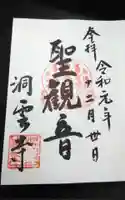 奉拝
令和元年
十二月廿日
聖観音
洞雲寺